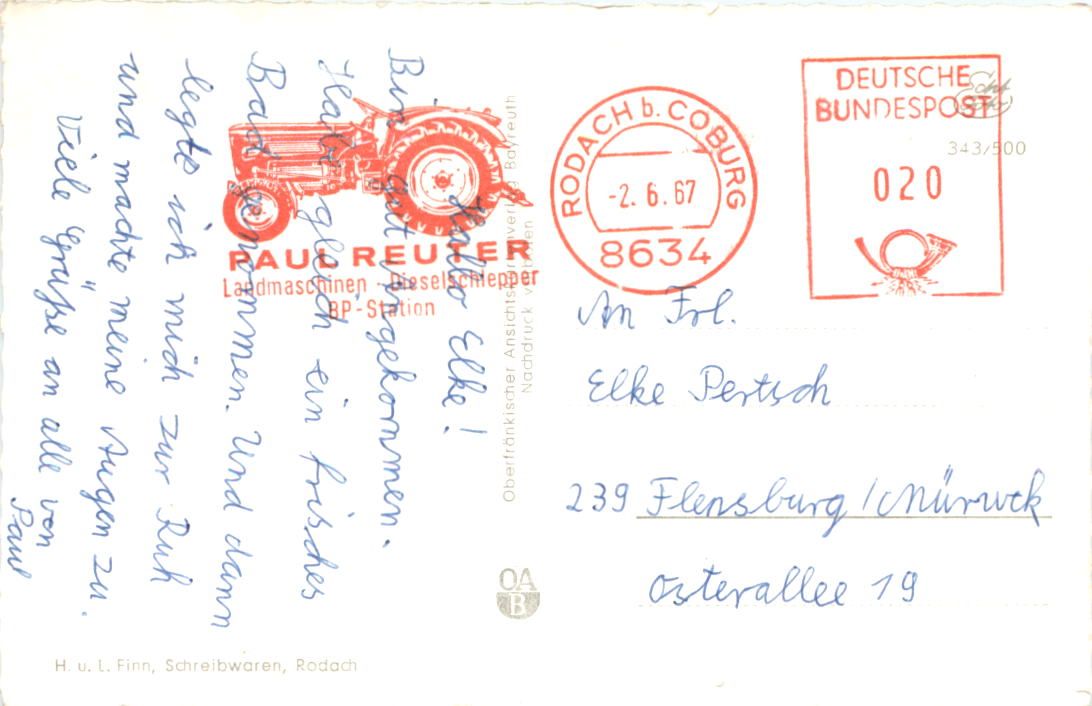 Hallo Elke!
Bin gut angekommen.
Habe gleich ein frisches
Bad genommen. Und dann
legte ich mich zur Ruh
und machte meine Augen zu.
Viele Grüße an alle von
Paul
PAUL REUTER
Landmaschinen - Dieselschlepper
BP-Station
RODACH b. COBURG
-2. 6. 67
8634
DEUTSCHE
BUNDESPOST
020
Echt
Foto
343/500
An Frl.
Elke Pertsch
239 Flensburg/Mürwik
Osterallee 19
Oberfränkischer Ansichtskartenverlag Bayreuth
Nachdruck verboten
OA
B
H. u. L. Finn, Schreibwaren, Rodach